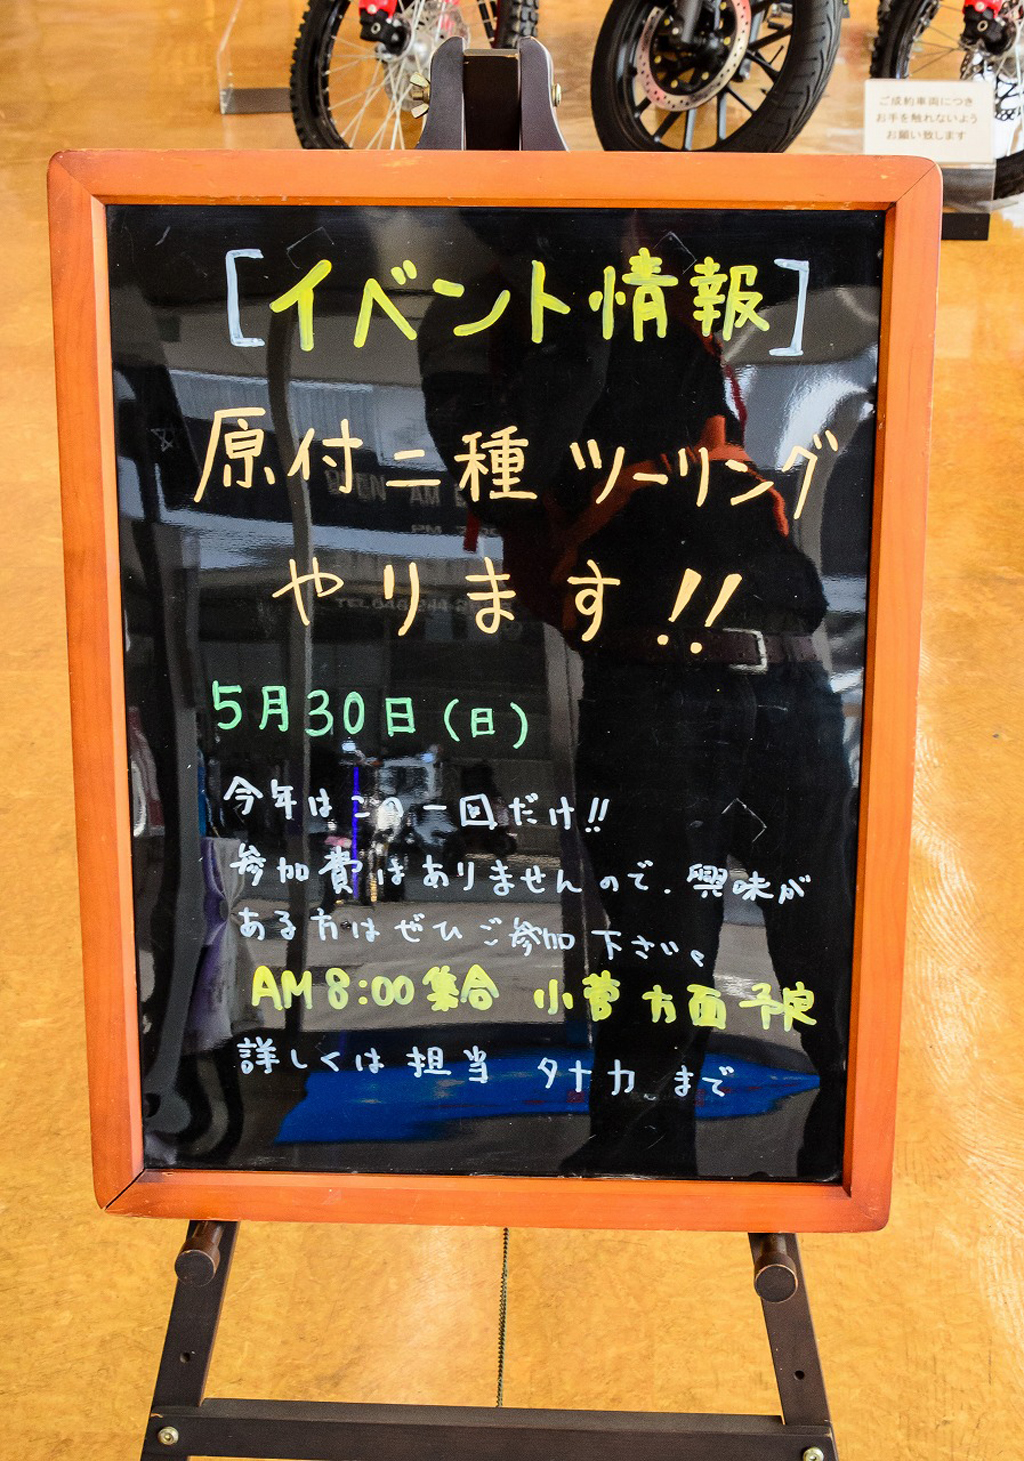 ご成約車両につき
お手を触れないよう
お願い致します
[イベント情報]
原付二種ツーリング
やります!!
5月30日(日)
今年はこの一回だけ!!
参加費はありませんので、興味が
ある方はぜひご参加下さい。
AM8:00集合 小菅方面予定
詳しくは担当 タナカ まで